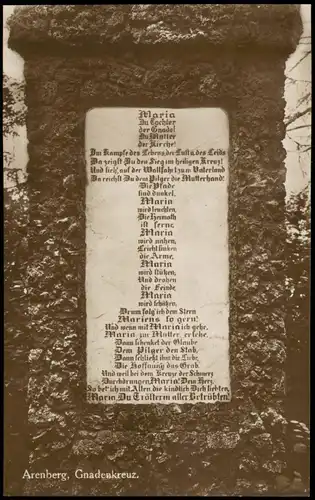 Maria
Du Tochter
der Gnade!
Du Mutter
der Kirche!
Im Kampfe des Lebens, der Lust u. des Leids
Da zeigst Du den Sieg im heiligen Kreuz!
Und sieh', auf der Wallfahrt zum Vaterland
Da reichst Du dem Pilger die Mutterhand!
Die Pfade
sind dunkel,
Maria
wird leuchten,
Die Heimath
ist ferne,
Maria
wird nahen,
Leicht sinken
die Arme,
Maria
wird stützen,
Und drohen
die Feinde,
Maria
wird schützen,
Drum folg' ich dem Stern
Mariens so gern!
Und wenn mit Maria ich gehe,
Maria zur Mutter erflehe,
Dann schenket der Glaube
Dem Pilger den Stab,
Dann schließt ihm die Liebe,
Die Hoffnung das Grab.
Und weil bei dem Kreuze der Schmerz
Durchdrungen, Maria! Dein Herz,
So bet' ich mit Allen die kindlich Dich liebten,
Maria, Du Trösterin aller Betrübten!
Arenberg, Gnadenkreuz.